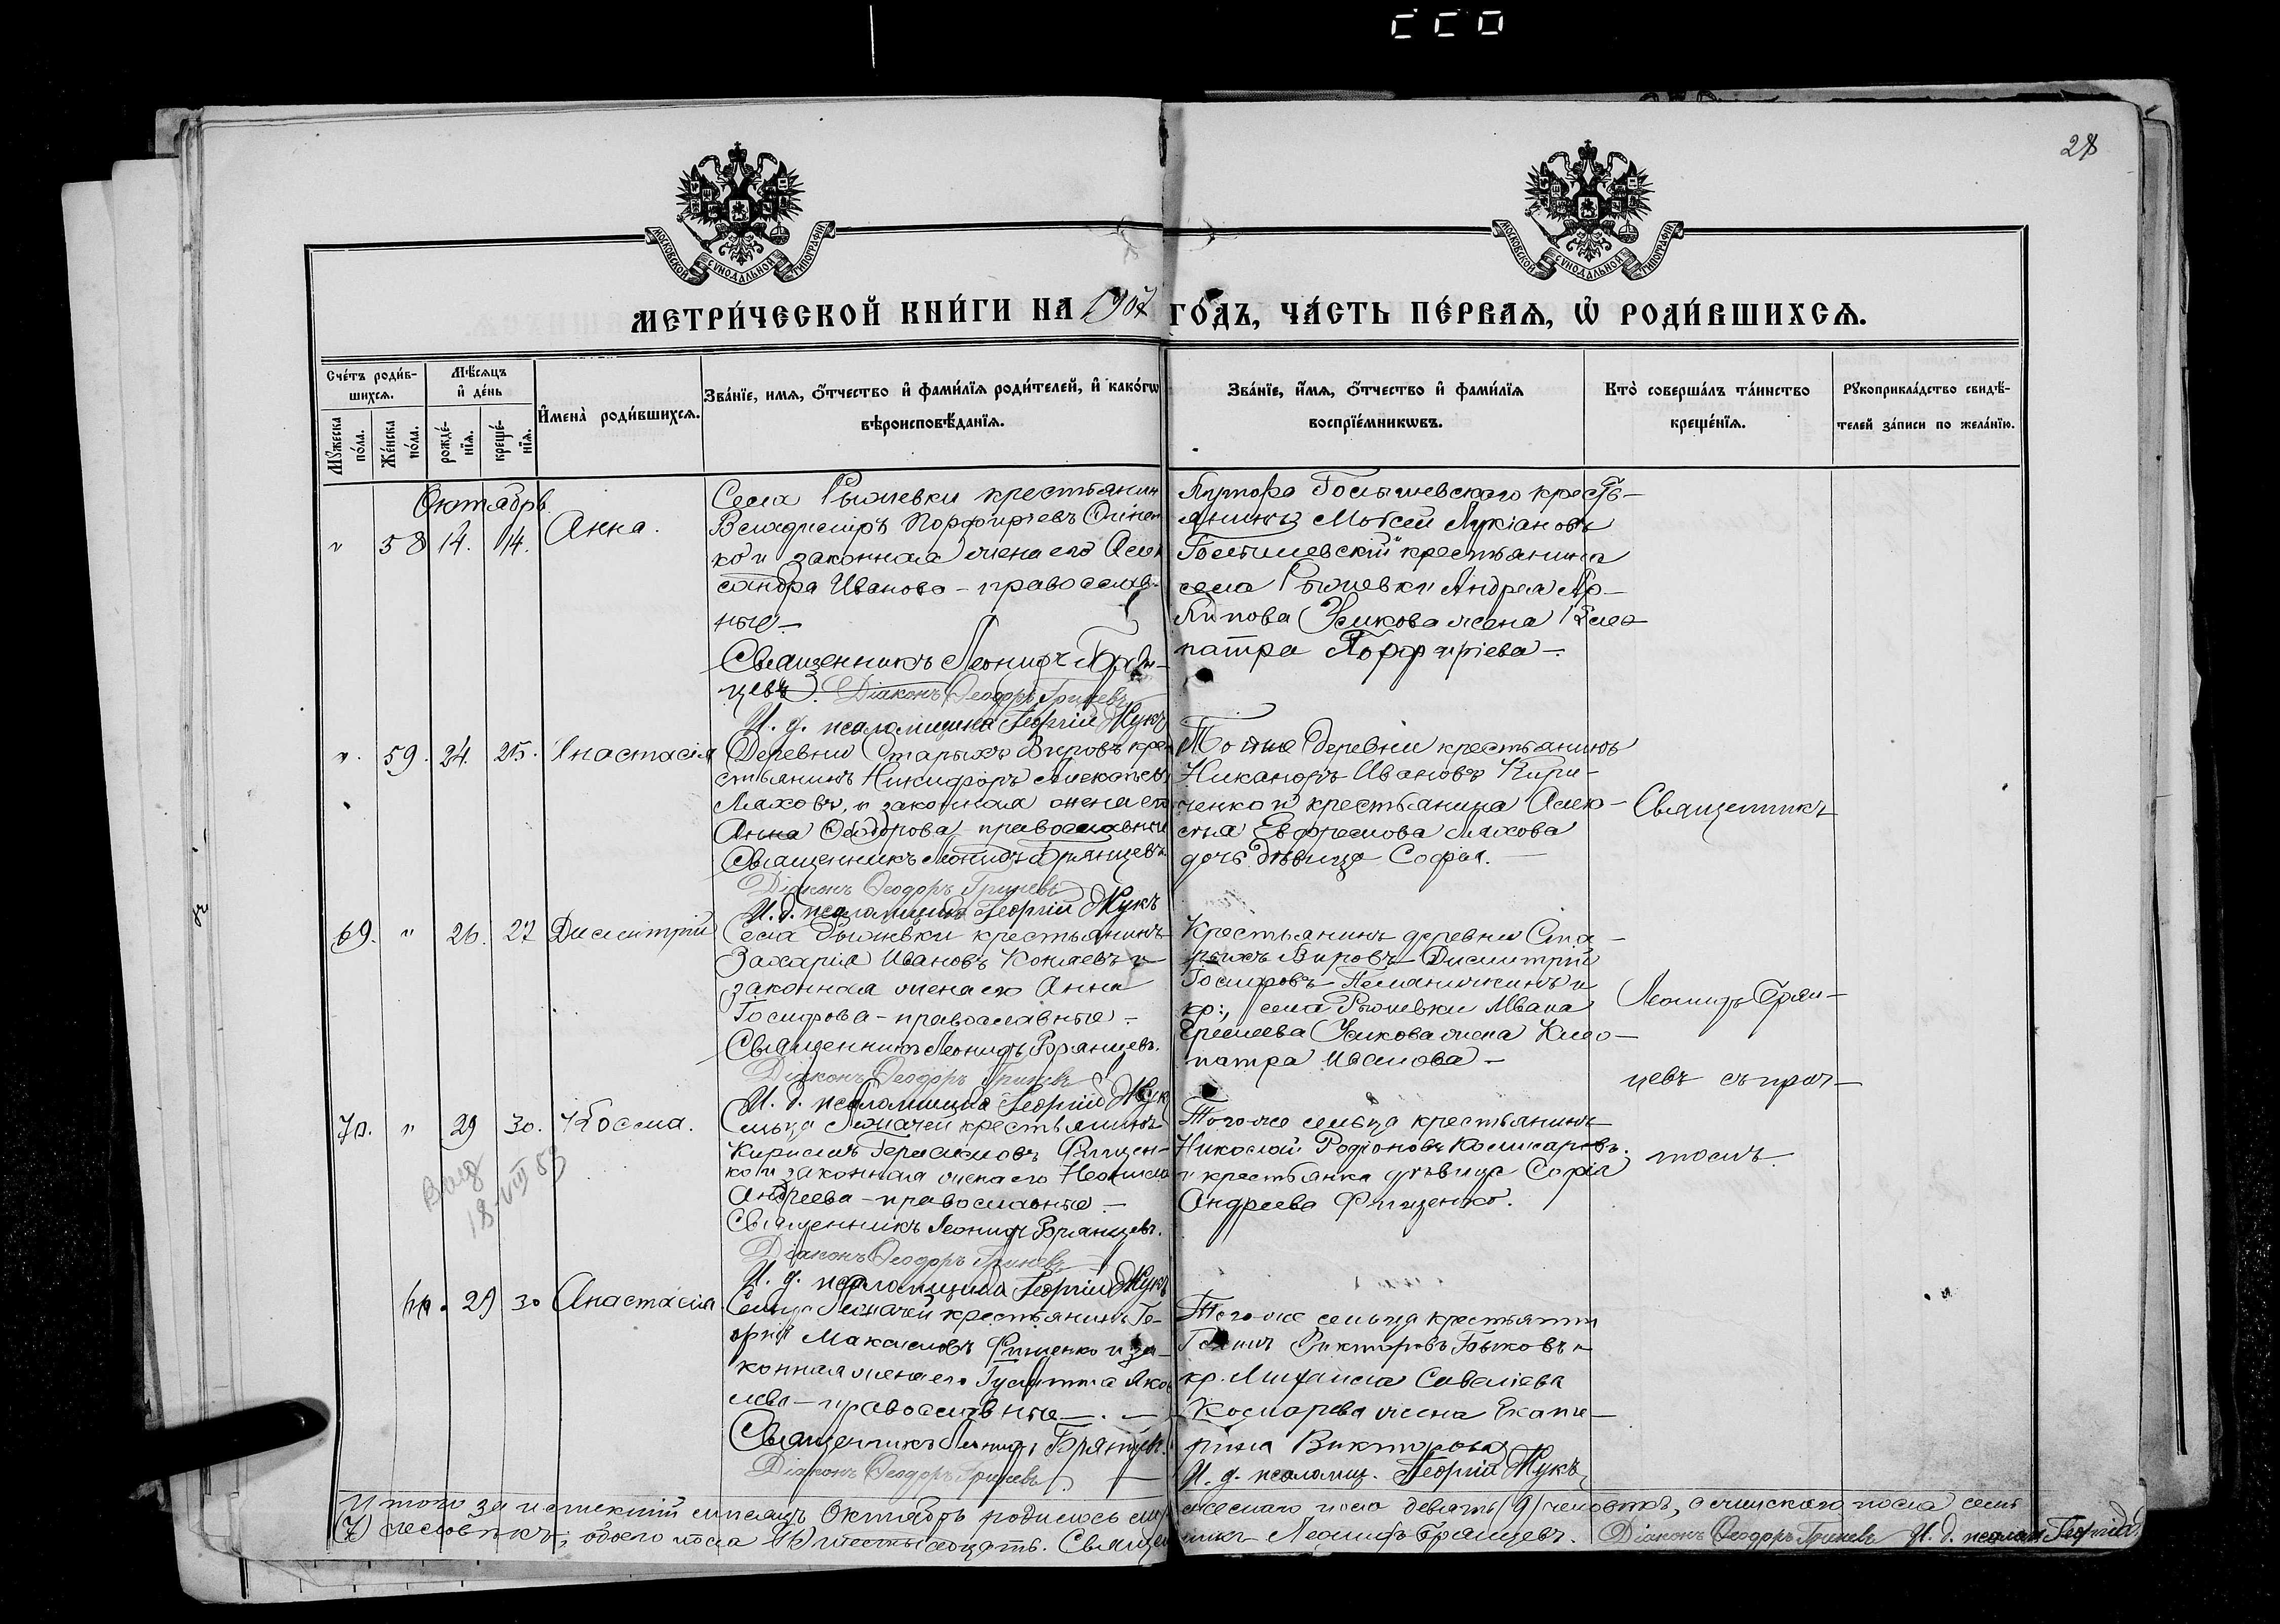 28
МОСКОВСКОЙ СѴНОДАЛЬНОЙ ТИПОГРАФІИ
МОСКОВСКОЙ СѴНОДАЛЬНОЙ ТИПОГРАФІИ
МЕТРИ́ЧЕСКОЙ КНИ́ГИ НА 1907 ГО́ДЪ, ЧА́СТЬ ПЕ́РВАЯ, Ѡ҆ РОДИ́ВШИХСЯ.
Сче́тъ роди́в-
шихся.
Мꙋжеска по́ла.
Же́нска по́ла.
Мѣ́сяцъ и҆ де́нь
рожде́-нїя.
креще́-нїя.
И҆мена̀ роди́вшихся.
Зва́нїе, имя, ѻ҆́тчество и҆ фами́лїя роди́телей, и҆ како́гѡ
вѣроисповѣ́данїя.
Зва́нїе, и҆́мя, ѻ҆́тчество и҆ фами́лїя
воспрїе́мникѡвъ.
Кто̀ соверша́лъ та́инство
креще́нїя.
Рꙋкоприкла́дство свидѣ́-
телей за́писи по жела́нїю.
Октябрь
" 58 14. 14. Анна.
Села Рыжевки крестьянин
Владимiръ Порфирiевъ
ко и законная жена его Алек
сандра Иванова - православ-
ные -
Священникъ Леонидъ Брян-
цевъ. Дiаконъ Ѳеодоръ Гриневъ
И. д. псаломщика Георгiй Жукъ
Хутора Голышевскаго кресть-
янинъ Моѵсей Лукiановъ
Голышевскiй и крестьянина
села Рыжевки Андрея Ар-
хипова Зыкова жена Клео-
патра Порфирiева -.
". 59. 24. 25. Анастасiя
Деревни Старыхъ Вировъ кре
стьянинъ Никифоръ Алексѣевъ
Ляховъ, и законная жена его
Анна Ѳеодорова, православные
Священникъ Леонидъ Брянцевъ.
Дiаконъ Ѳеодоръ Гриневъ
И. д. псаломщика Георгiй Жукъ
Той же деревни крестьянинъ
Никаноръ Ивановъ Кири-
ченко и крестьянина Алек-
сѣя Ефремова Ляхова
дочь дѣвица Софiя. -
Священникъ
69. " 26. 27 Димитрiй
Села Рыжевки крестьянинъ
Захарiя Ивановъ Коняевъ и
законная жена его Анна
Iосифова - православные -.
Священникъ Леонидъ Брянцевъ.
Дiаконъ Ѳеодоръ Гриневъ
И. д. псаломщика Георгiй Жукъ
Крестьянинъ деревни Ста-
рыхъ Вировъ Димитрiй
Iосифовъ и
кр. села Рыжевки Ивана
Еремеева Зыкова жена Клео-
патра Иванова -
Леонидъ Брян-
цевъ съ прич-
70. " 29 30. Косма.
Сельца крестьянинъ
Кириллъ Герасимовъ Фищен-
ко и законная жена его Неонила
Андреева - православные -
Священникъ Леонидъ Брянцевъ.
Дiаконъ Ѳеодоръ Гриневъ
И. д. псаломщика Георгiй Жукъ
Того-же сельца крестьянинъ
Николай Родiоновъ
и крестьянка дѣвица Софiя
Андреева Фищенко.
томъ.
18-VIII 53
60. 29 30 Анастасiя
Сельца крестьянинъ Ге-
оргiй Максимовъ Фищенко и за-
конная жена его Iулитта Яков
лева - православные -. -
Священникъ Леонидъ Брянцевъ.
Дiаконъ Ѳеодоръ Гриневъ
Того-же сельца крестьянинъ
Викторовъ Быковъ и
кр. Михаила Савелiева
жена Екате-
рина Викторова
И. д. псаломщ. Георгiй Жукъ
Итого за истекшiй мѣсяцъ Октябрь родилось мужескаго пола девять (9) человѣкъ, а женскаго пола семь
(7) человѣкъ; обоего пола (16) шестнадцать. Священникъ Леонидъ Брянцевъ. Дiаконъ Ѳеодоръ Гриневъ И. д. псалом. Георгiй